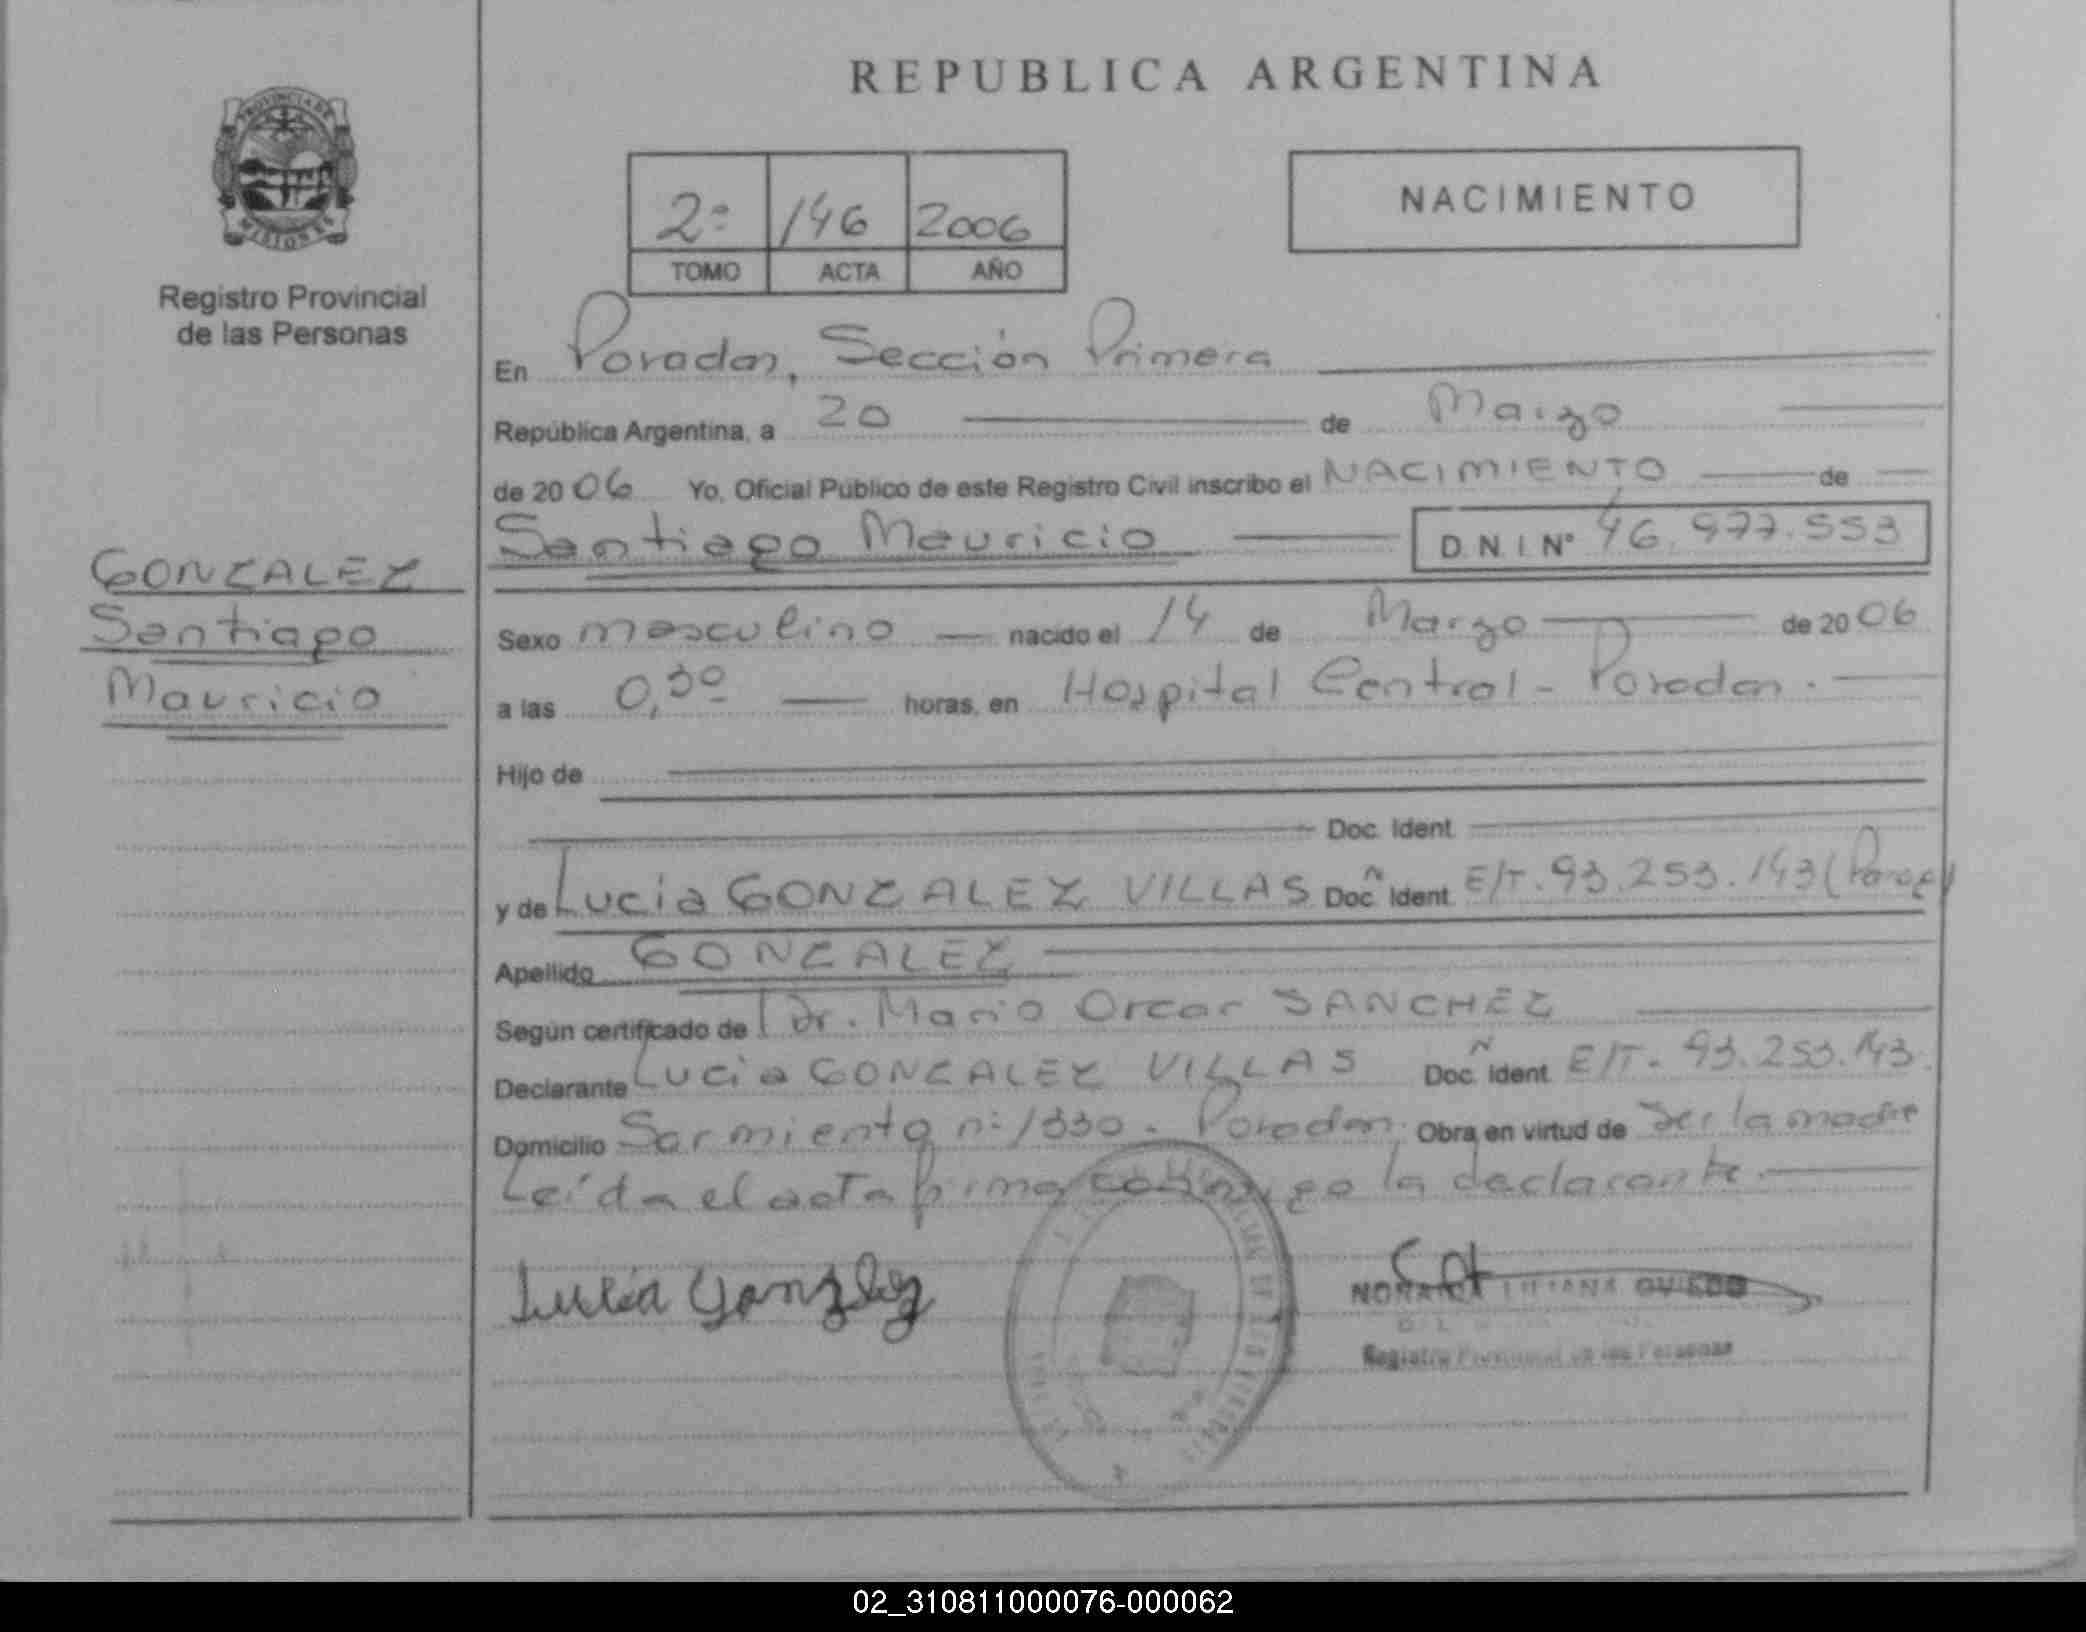 REPUBLICA ARGENTINA
PROVINCIA DE
MISIONES
Registro Provincial
de las Personas
2º 146 2006
TOMO ACTA AÑO
NACIMIENTO
En Posadas, Sección Primera
República Argentina, a 20 de Marzo
de 2006 Yo, Oficial Público de este Registro Civil inscribo el NACIMIENTO de
Santiago Mauricio D.N.I. Nº 46.977.553
GONZALEZ
Santiago
Mauricio
Sexo masculino nacido el 14 de Marzo de 2006
a las 0,30 horas, en Hospital Central - Posadas.
Hijo de
Doc. Ident.
y de Lucia GONZALEZ VILLAS Doc. Ident. E/T. 93.253.143
Apellido GONZALEZ
Según certificado de Dr. Mario Oscar SANCHEZ
Declarante Lucia GONZALEZ VILLAS Doc. Ident. E/T. 93.253.143.
Domicilio Sarmiento nº 1330 - Posadas. Obra en virtud de ser la madre
Leída el acta firma conmigo la declarante.
Lucia Gonzalez
NORMA LILIANA OVIEDO
Registro Provincial de las Personas
02_310811000076-000062